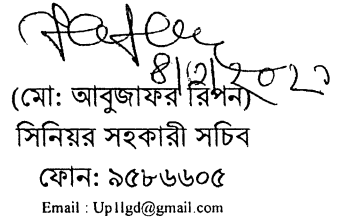 (মো: আবুজাফর রিপন)
সিনিয়র সহকারী সচিব
ফোন: ৯৫৮৬৬০৫
Email : Up1lgd@gmail.com